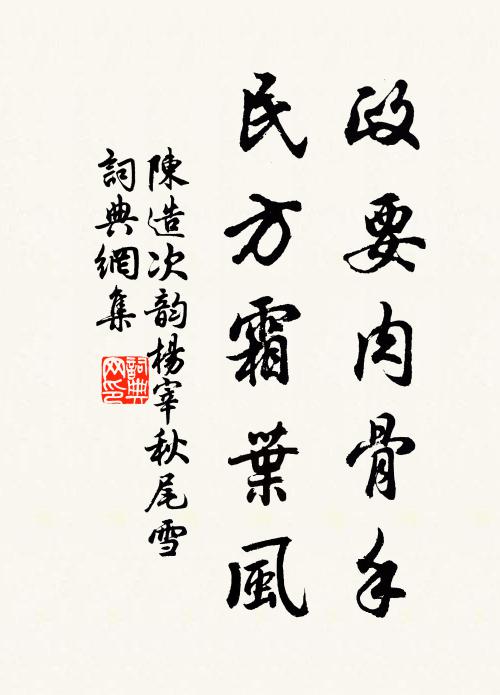 政要肉骨手
民方霜葉風
陳造次韵楊宰秋尾雪
詞典網集
詞典网印